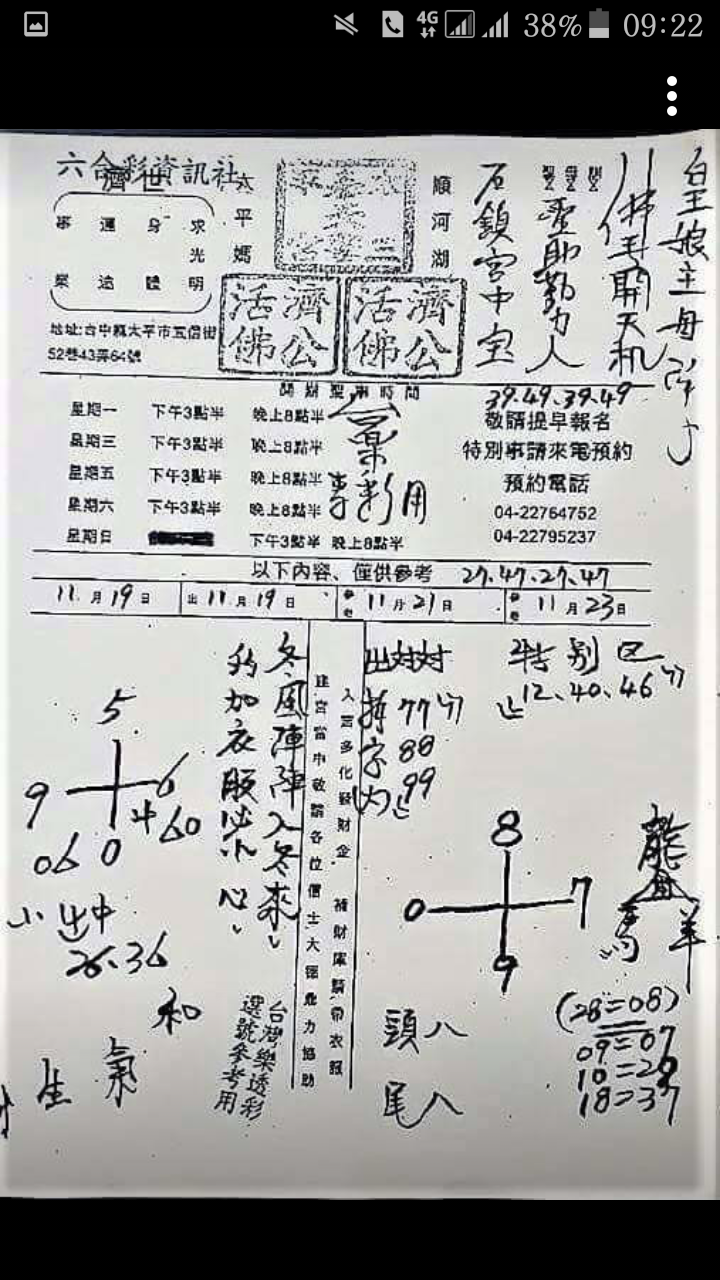 38% 09:22
4G
六合彩資訊社
濟世
太平媽
順河湖
求身運事
光
明體途業
濟公活佛
濟公活佛
地址:台中縣太平市五信街
52巷43弄64號
石鎮宮中宝
聖助勤力人
佛佳開天机
皇娘主母
39.49.39.49
星期一 下午3點半 晚上8點半
星期三 下午3點半 晚上8點半
星期五 下午3點半 晚上8點半
星期六 下午3點半 晚上8點半
星期日 下午3點半 晚上8點半
專彩用
敬請提早報名
特別事請來電預約
預約電話
04-22764752
04-22795237
以下內容、僅供參考 27.47.27.47
11月19日
出11月19日
參考11月21日
參考11月23日
5
9 6
0
06
60
小出中
26.36
和
氣
生
冬風陣陣入冬來
加衣服
台灣樂透彩
選號參考用
入宮多化發財金 補財庫
進宮當中敬請各位信士大德
出対対
77
88
99
字
特别区
12、40、46
8
0 7
9
龍
馬
羊
頭八
尾八
(28=08)
09=07
10=20
18=37